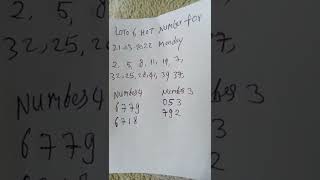 LOTO 6 HOT Number for
21.03.2022 Monday
2, 5, 8, 11, 19, 7,
32, 25, 28, 41, 39 37,
Number 4 Number 3
6779 053
6718 792